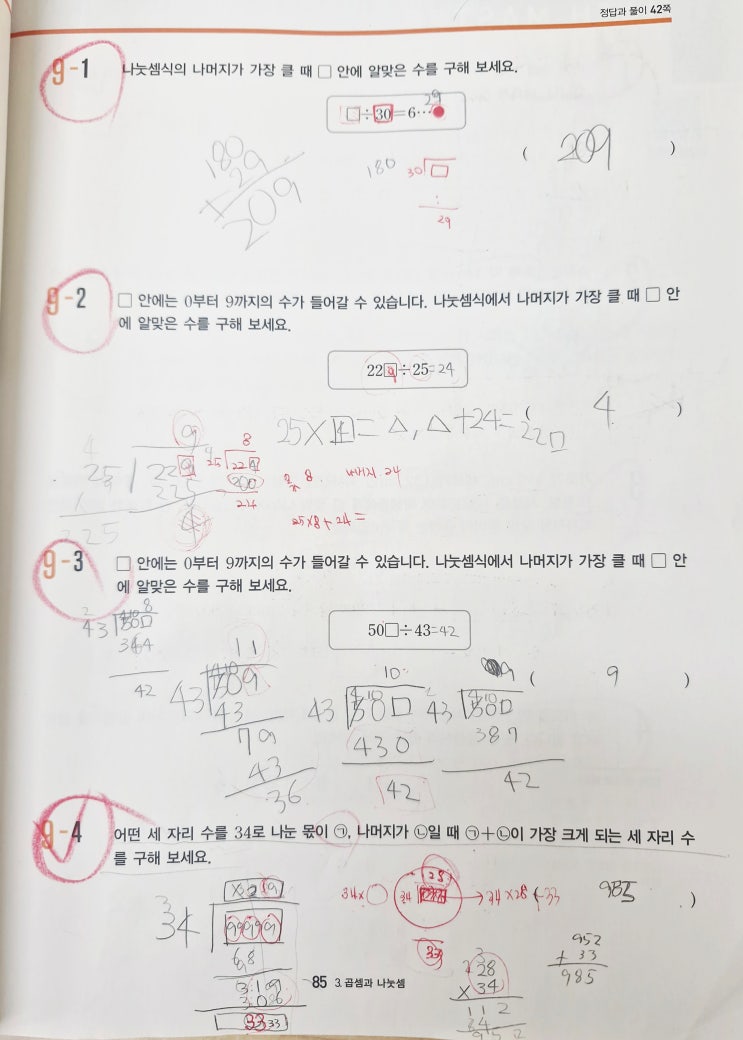 정답과 풀이 42쪽
9-1 나눗셈식의 나머지가 가장 클 때 □ 안에 알맞은 수를 구해 보세요.
29
□÷30=6…●
180
29
+
209
180
30 □
29
( 209 )
9-2 □ 안에는 0부터 9까지의 수가 들어갈 수 있습니다. 나눗셈식에서 나머지가 가장 클 때 □ 안
에 알맞은 수를 구해 보세요.
229÷25=24
25×4=△, △+24=22□
( 4 )
4
9
25 229
225
4
225
8
25 224
200
24
몫 8 나머지 24
25×8+24=
9-3 □ 안에는 0부터 9까지의 수가 들어갈 수 있습니다. 나눗셈식에서 나머지가 가장 클 때 □ 안
에 알맞은 수를 구해 보세요.
50□÷43=42
8
43 50□
344
42
11
43 509
43
79
43
36
10
43 50□
430
42
9
43 50□
387
42
( 9 )
9-4 어떤 세 자리 수를 34로 나눈 몫이 ㉠, 나머지가 ㉡일 때 ㉠+㉡이 가장 크게 되는 세 자리 수
를 구해 보세요.
34
999
68
319
306
33 33
34×○
28
34
34×28+33
33
985 )
28
×34
112
952
+ 33
985
85 3. 곱셈과 나눗셈